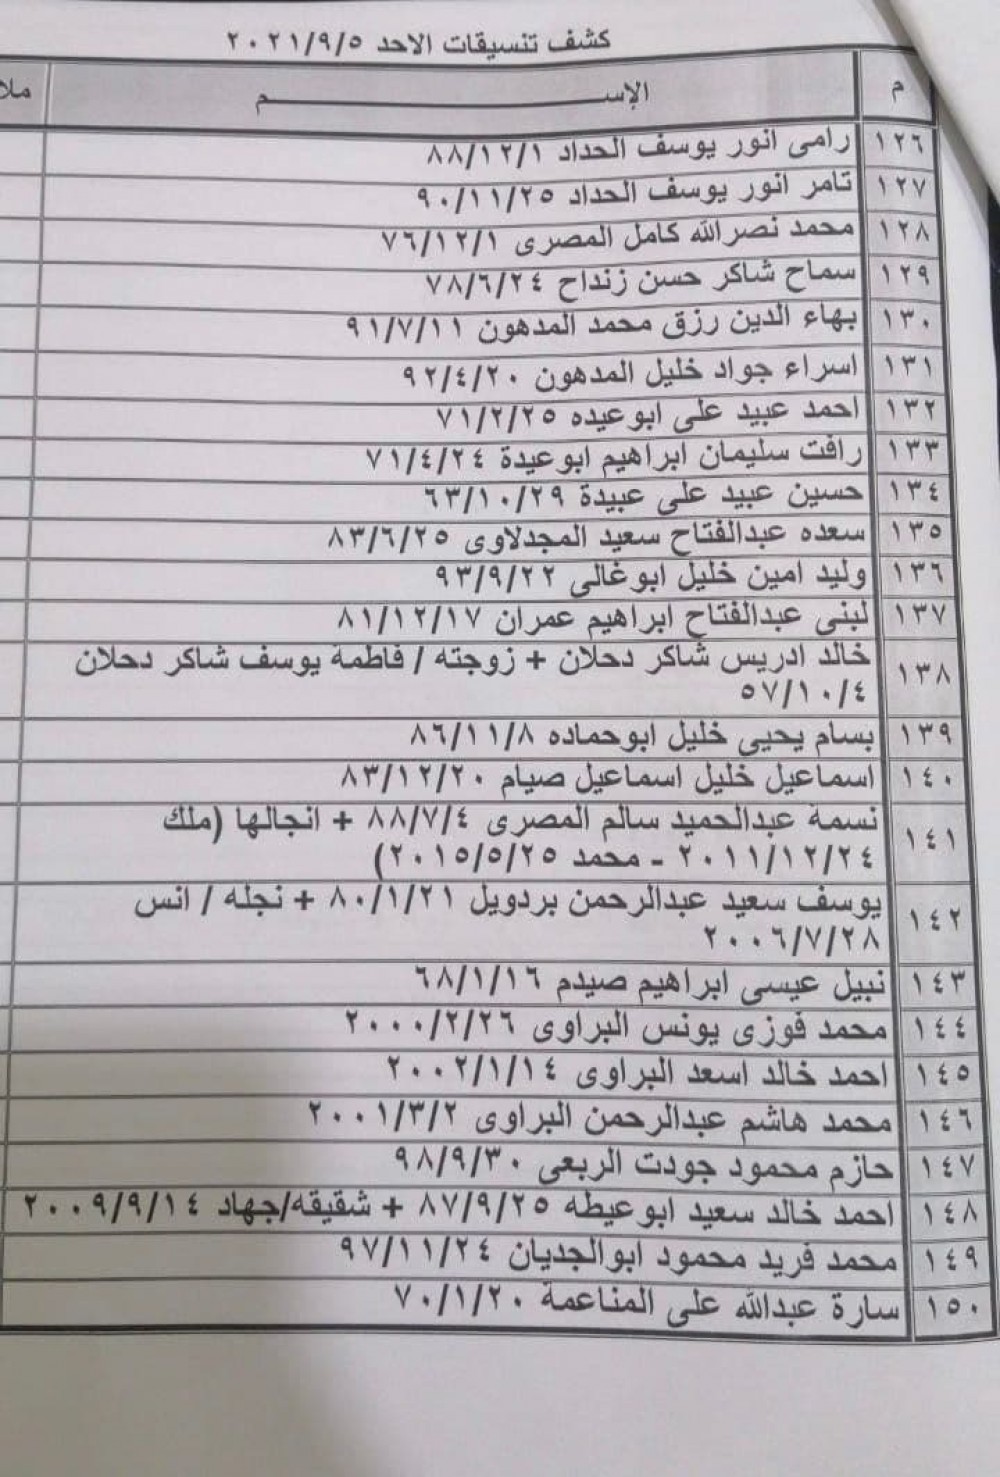 كشف تنسيقات الاحد ٢٠٢١/٩/٥
م الإســـــــم ملا
١٢٦ رامى انور يوسف الحداد ٨٨/١٢/١
١٢٧ تامر انور يوسف الحداد ٩٠/١١/٢٥
١٢٨ محمد نصرالله كامل المصرى ٧٦/١٢/١
١٢٩ سماح شاكر حسن زنداح ٧٨/٦/٢٤
١٣٠ بهاء الدين رزق محمد المدهون ٩١/٧/١١
١٣١ اسراء جواد خليل المدهون ٩٢/٤/٢٠
١٣٢ احمد عبيد على ابوعيده ٧١/٢/٢٥
١٣٣ رافت سليمان ابراهيم ابوعيدة ٧١/٤/٢٤
١٣٤ حسين عبيد على عبيدة ٦٣/١٠/٢٩
١٣٥ سعده عبدالفتاح سعيد المجدلاوى ٨٣/٦/٢٥
١٣٦ وليد امين خليل ابوغالى ٩٣/٩/٢٢
١٣٧ لبنى عبدالفتاح ابراهيم عمران ٨١/١٢/١٧
١٣٨ خالد ادريس شاكر دحلان + زوجته / فاطمة يوسف شاكر دحلان
٥٧/١٠/٤
١٣٩ بسام يحيى خليل ابوحماده ٨٦/١١/٨
١٤٠ اسماعيل خليل اسماعيل صيام ٨٣/١٢/٢٠
١٤١ نسمة عبدالحميد سالم المصرى ٨٨/٧/٤ + انجالها (ملك
٢٠١١/١٢/٢٤ - محمد ٢٠١٥/٥/٢٥)
١٤٢ يوسف سعيد عبدالرحمن بردويل ٨٠/١/٢١ + نجله / انس
٢٠٠٦/٧/٢٨
١٤٣ نبيل عيسى ابراهيم صيدم ٦٨/١/١٦
١٤٤ محمد فوزى يونس البراوى ٢٠٠٠/٢/٢٦
١٤٥ احمد خالد اسعد البراوى ٢٠٠٢/١/١٤
١٤٦ محمد هاشم عبدالرحمن البراوى ٢٠٠١/٣/٢
١٤٧ حازم محمود جودت الربعى ٩٨/٩/٣٠
١٤٨ احمد خالد سعيد ابوعيطه ٨٧/٩/٢٥ + شقيقه/جهاد ٢٠٠٩/٩/١٤
١٤٩ محمد فريد محمود ابوالجديان ٩٧/١١/٢٤
١٥٠ سارة عبدالله على المناعمة ٧٠/١/٢٠